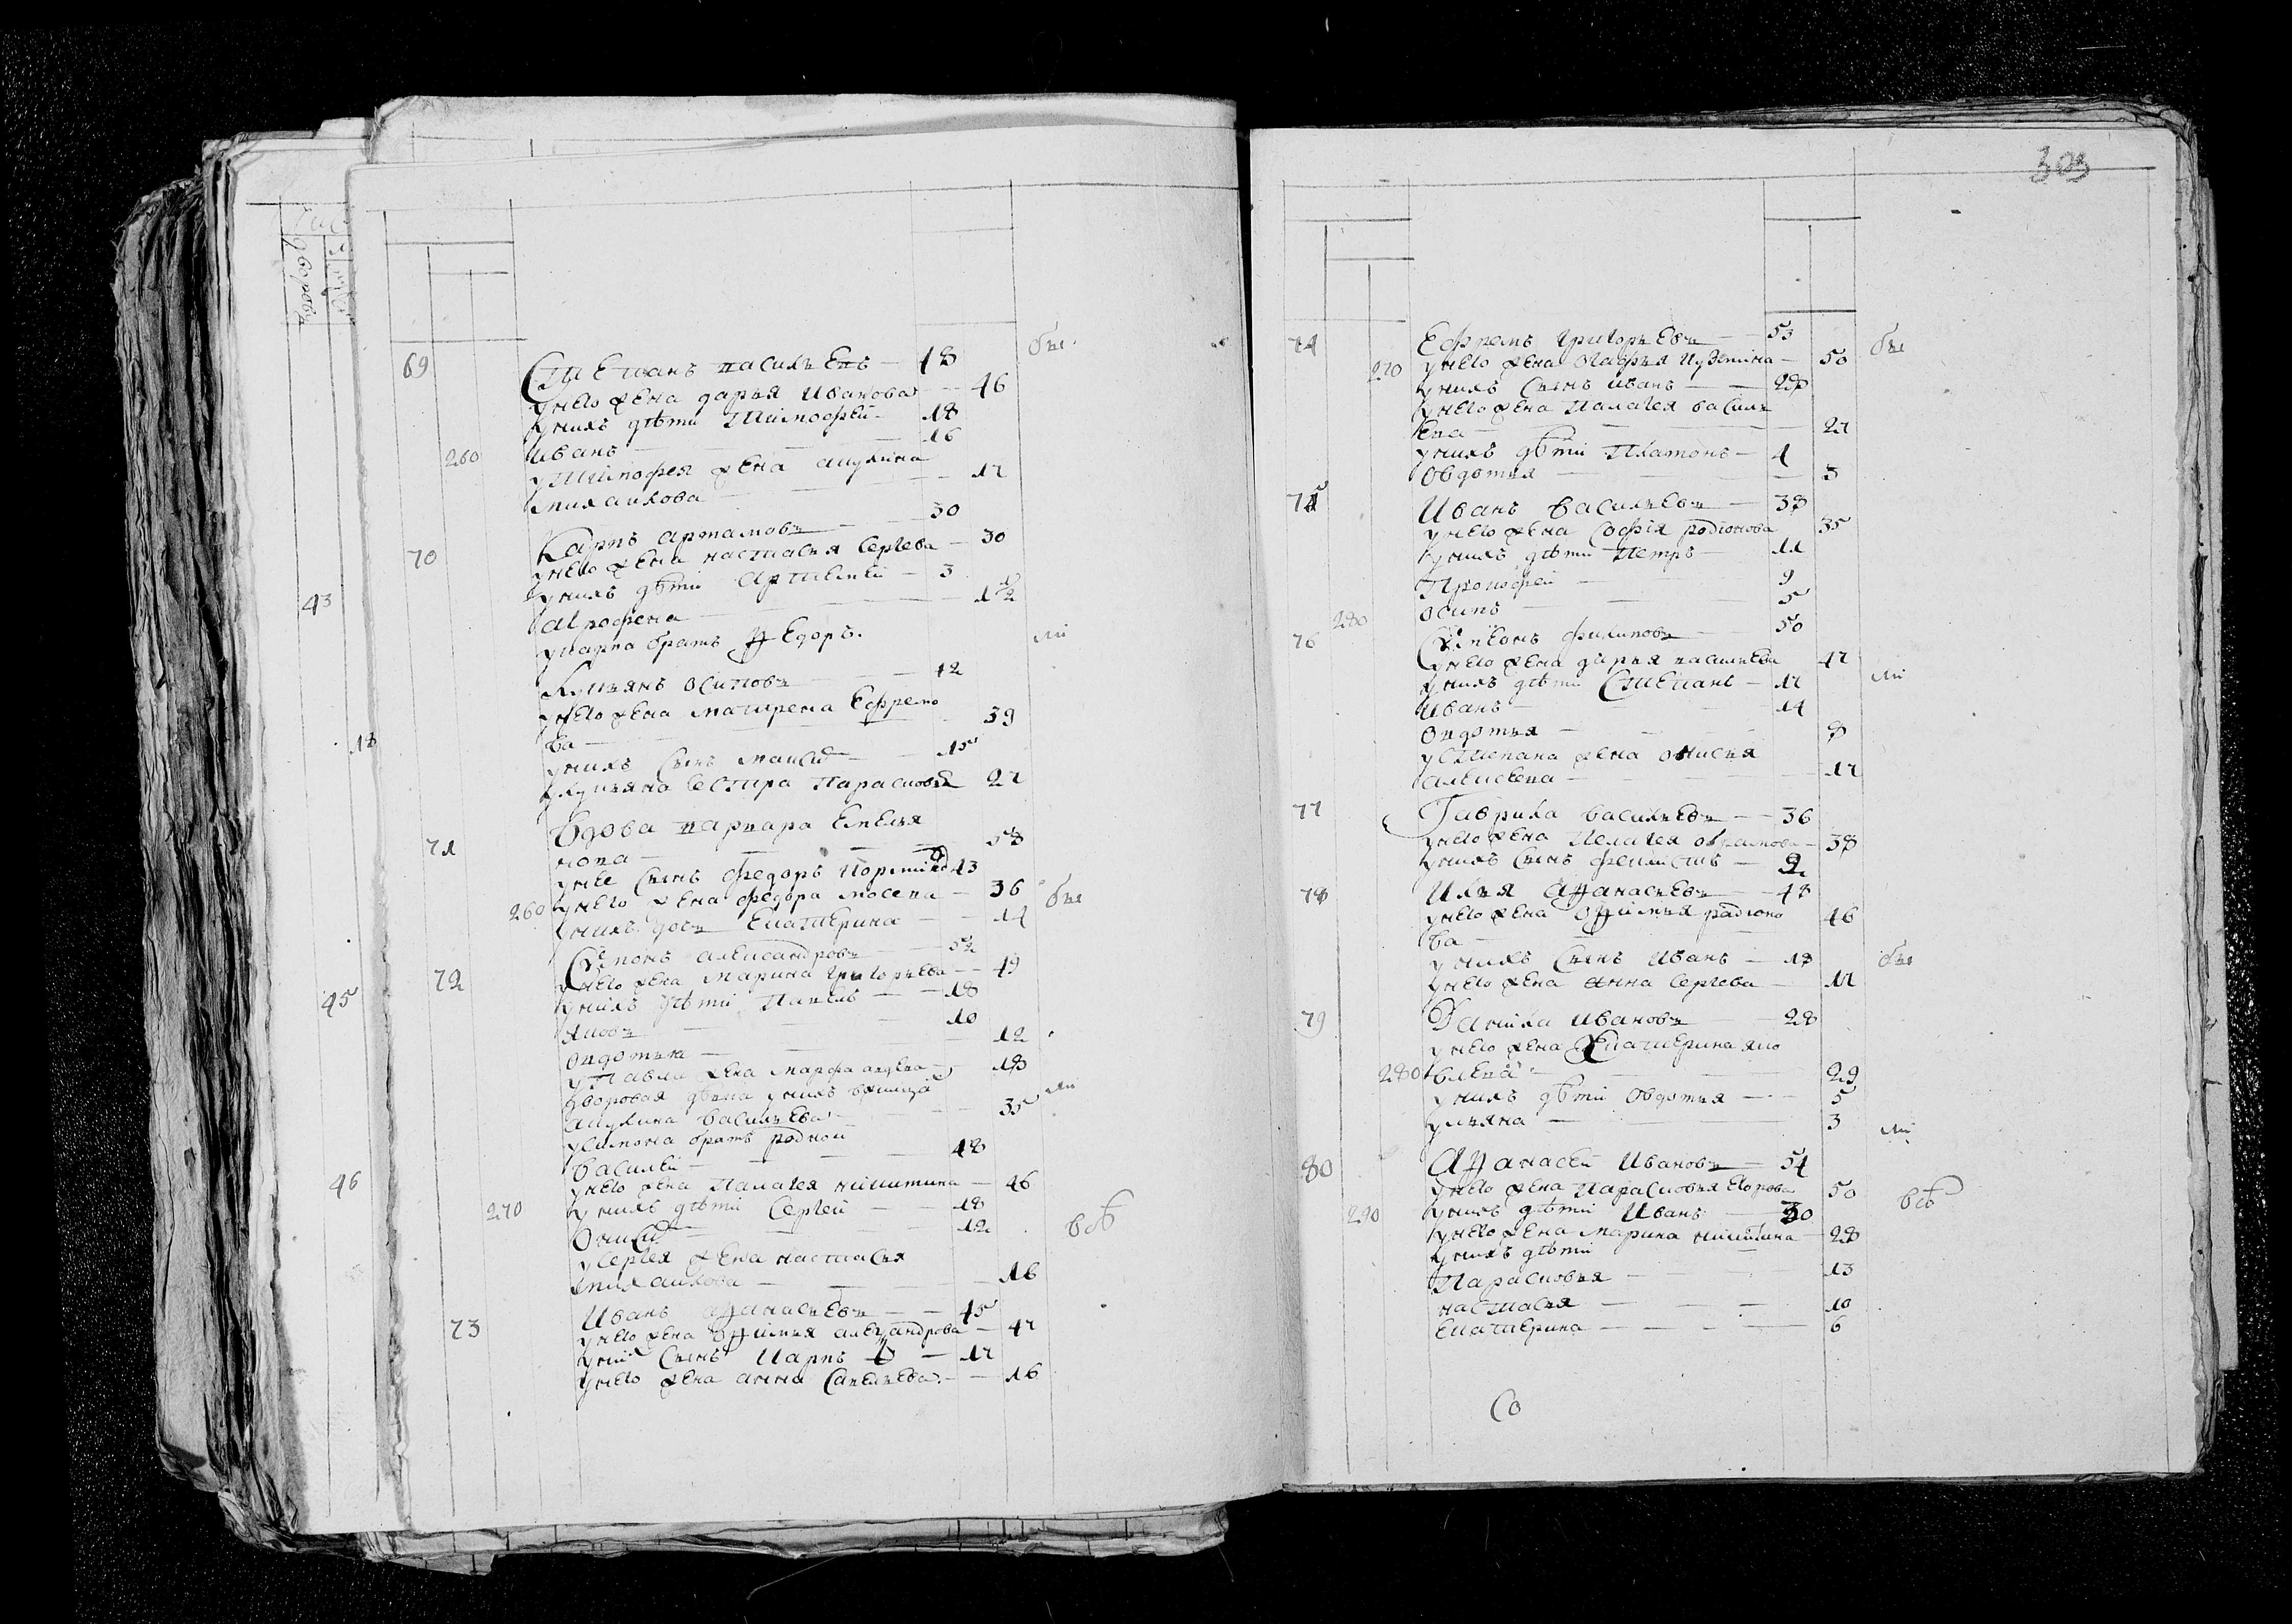 69 Степанъ василевъ — 48 бы
у него жена дарья Иванова — 46
у нихъ дѣти Тимофей — 18
260 Иванъ — 16
у Тимофея жена акулина
михаилова — 17
70 Карпъ артамовъ — 30
у него жена настасья Сергева — 30
у нихъ дѣти Артемей — 3
43 Агрофена — 12
у карпа братъ Ѳедоръ.
Лукьянъ осиповъ — 42
у него жена матрена Ефремо
ва — 39
18 у нихъ сынъ — 15
у лукьяна сестра Парасковья 27
71 Вдова варвара Емелья
нова — 58
у нее сынъ федоръ 43
260 у него жена федора мосева — 36 бы
у нихъ дочь Екатерина — 14
72 Семонъ александровъ — 52
у него жена марина григорьева — 49
45 у нихъ дѣти Павелъ — 18
Яковъ — 10
овдотья — 12
у Павла жена марфа — 18
дворовая дѣвка у нихъ
акулина васильева — 35
у симона братъ родной
василей — 48
46 у него жена Палагея никитина — 46
270 у нихъ дѣти Сергей — 18
— 12 всѣ
у сергея жена настасья
михаилова — 16
73 Иванъ афанасьевъ — 45
у него жена офимья александрова — 47
у нихъ сынъ Карпъ — 17
у него жена анна савельева — 16
303
74 Ефремъ григорьевъ — 53 бы
270 у него жена огафья кузмина — 50
у нихъ сынъ иванъ — 28
у него жена палагея василь
ева — 27
у нихъ дѣти Платонъ — 4
овдотья — 3
75 Иванъ васильевъ — 38
у него жена софія родіонова 35
у нихъ дѣти петръ — 11
Прокофей — 9
280 осипъ — 5
76 филиповъ — 50
у него жена дарья васильева 47
у нихъ дѣти Степанъ — 17
иванъ — 14
овдотья — 8
у степана жена онисья
алексеева — 17
77 Гаврила васильевъ — 36
у него жена Пелагея — 38
у нихъ сынъ — 2
78 Илья аѳанасьевъ — 48
у него жена офимья радионо
ва — 46
у нихъ сынъ иванъ — 18 бы
у него жена анна сергева — 17
79 Данила ивановъ — 28
у него жена Екатерина яко
280 влева — 29
у нихъ дѣти овдотья — 5
ульяна — 3
80 Аѳанасей ивановъ — 54
у него жена Парасковья егорова 50
290 у нихъ дѣти иванъ — 30 всѣ
у него жена марина никитина 28
у нихъ дѣти
Парасковья — 13
настасья — 10
екатерина — 6
Со